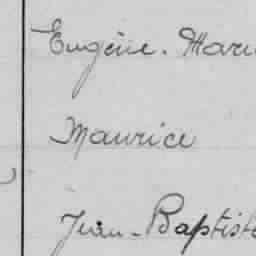 Eugène. Marie
Maurice
Jean-Baptiste